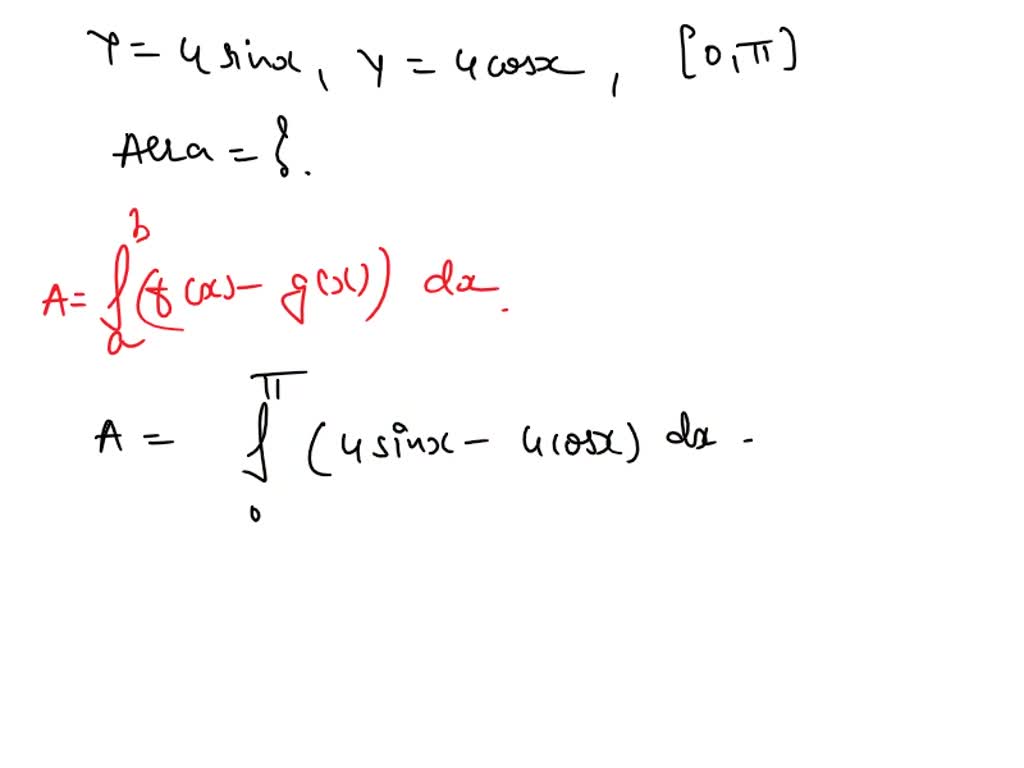 Y = 4 sinx, Y = 4 cosx, [0, π]
Area = ∫.
A = ∫_a^b (f(x) - g(x)) dx.
A = ∫_0^π (4 sinx - 4 cosx) dx.